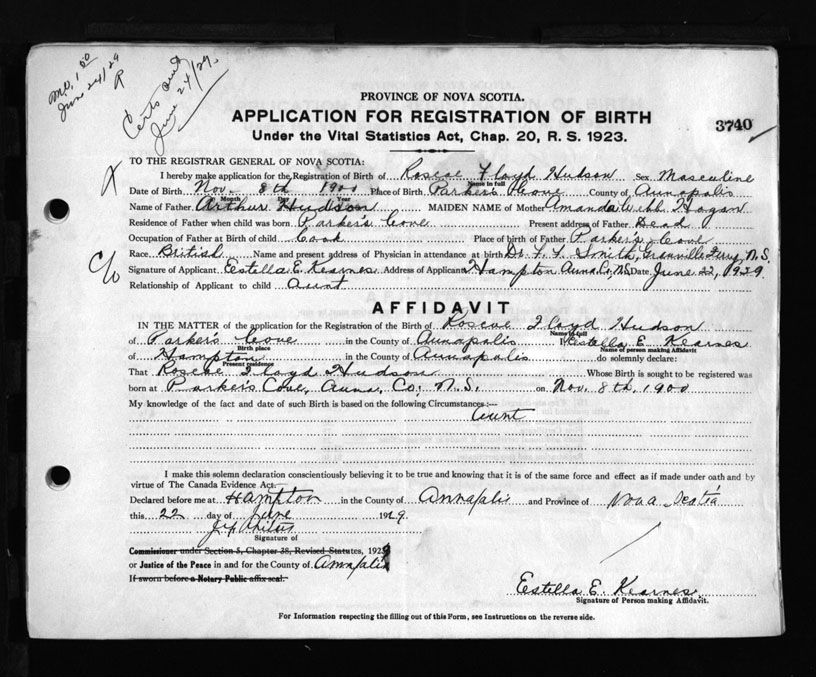 M.O. 1.00
June 24/29
R
Certs sent
June 24/29.
PROVINCE OF NOVA SCOTIA.
APPLICATION FOR REGISTRATION OF BIRTH
3740
Under the Vital Statistics Act, Chap. 20, R. S. 1923.
TO THE REGISTRAR GENERAL OF NOVA SCOTIA:
X
I hereby make application for the Registration of Birth of Roscoe Floyd Hudson Sex Masculine
Name in full
Date of Birth Nov. 8th 1900 Place of Birth Parkers Cove County of Annapolis
Month Day Year
Name of Father Arthur Hudson MAIDEN NAME of Mother Amanda Hogan
Residence of Father when child was born Parker's Cove Present address of Father Dead
Occupation of Father at Birth of child Cook Place of birth of Father Parker's Cove
Race British Name and present address of Physician in attendance at birth Dr. Smith, Granville Ferry, N.S.
c/o
Signature of Applicant Estella E. Kearnes Address of Applicant Hampton Anna. Co., N.S. Date June 22, 1929.
Relationship of Applicant to child Aunt
AFFIDAVIT
IN THE MATTER of the application for the Registration of the Birth of Roscoe Floyd Hudson
Name in full
of Parker's Cove in the County of Annapolis I Estella E. Kearnes
Birth place Name of person making Affidavit
of Hampton in the County of Annapolis do solemnly declare:
Present residence
That Roscoe Floyd Hudson Whose Birth is sought to be registered was
born at Parker's Cove, Anna, Co; N.S. on Nov. 8th, 1900
My knowledge of the fact and date of such Birth is based on the following Circumstances:—
Aunt
I make this solemn declaration conscientiously believing it to be true and knowing that it is of the same force and effect as if made under oath and by
virtue of The Canada Evidence Act.
Declared before me at Hampton in the County of Annapolis and Province of Nova Scotia
this 22 day of June 1929.
Signature of
Commissioner under Section 5, Chapter 38, Revised Statutes, 1923
or Justice of the Peace in and for the County of Annapolis
If sworn before a Notary Public affix seal.
Estella E. Kearnes
Signature of Person making Affidavit.
For Information respecting the filling out of this Form, see Instructions on the reverse side.